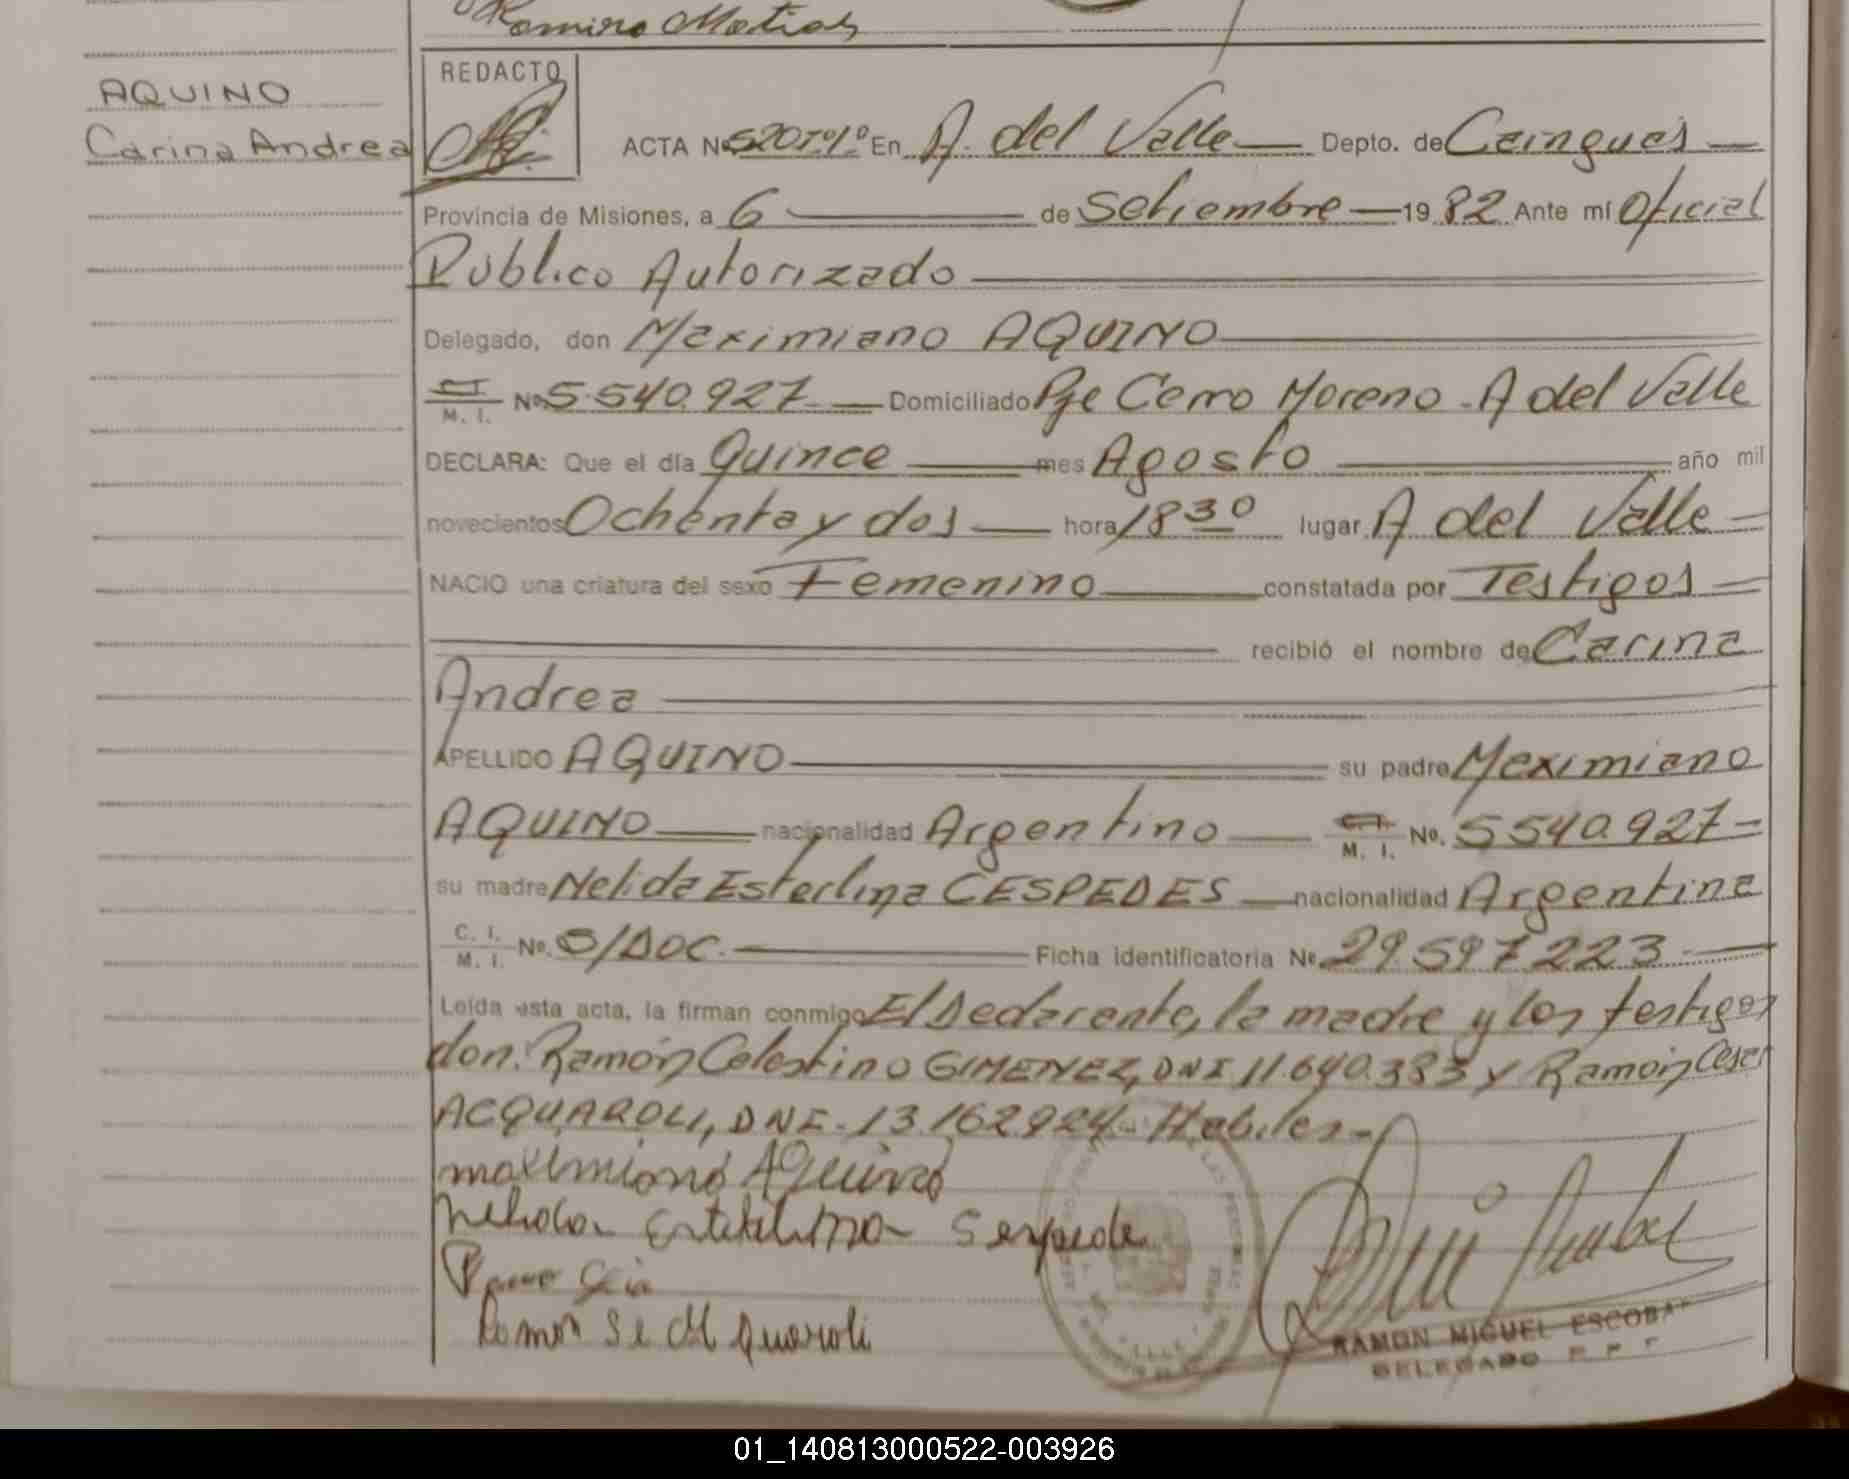 Ramiro Matias
AQUINO
Carina Andrea
REDACTO
ACTA Nº 520 Tº1º En A. del Valle Depto. de Cainguás
Provincia de Misiones, a 6 de Setiembre 1982 Ante mí Oficial
Público Autorizado
Delegado, don Maximiano AQUINO
C.I. M. I. Nº 5.540.927 Domiciliado Pje Cerro Moreno - A del Valle
DECLARA: Que el día Quince mes Agosto año mil
novecientos Ochenta y dos hora 18 30 lugar A del Valle
NACIO una criatura del sexo Femenino constatada por Testigos
recibió el nombre de Carina
Andrea
APELLIDO AQUINO su padre Maximiano
AQUINO nacionalidad Argentino C.I. M. I. Nº. 5540.927
su madre Nelida Esterlina CESPEDES nacionalidad Argentina
C. I. M. I. Nº. S/DOC. Ficha identificatoria Nº 29.597.223
Leída esta acta, la firman conmigo El Declarante, la madre y los testigos
don. Ramón Celestino GIMENEZ, DNI 11.640.383 y Ramón Cesar
ACQUAROLI, DNI. 13.162.924 - Habiles -
maximiano Aquino
Ramon
RAMON MIGUEL ESCOBAR
DELEGADO
01_140813000522-003926